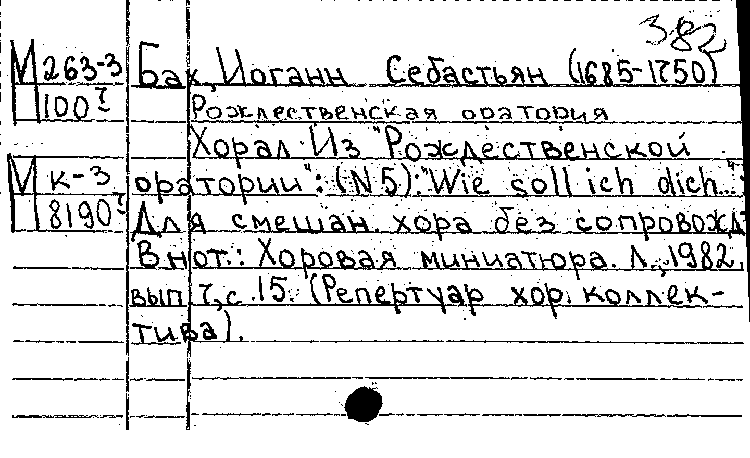 382
М 263-3 Бах, Иоганн Себастьян (1685-1750)
100? Рождественская оратория
Хорал Из "Рождественской
М к-3 оратории": (N 5): "Wie soll ich dich..."
8190? Для смешан. хора без сопровожд
В нот.: Хоровая миниатюра. Л., 1982,
вып 7, с. 15. (Репертуар хор. коллек-
тива).